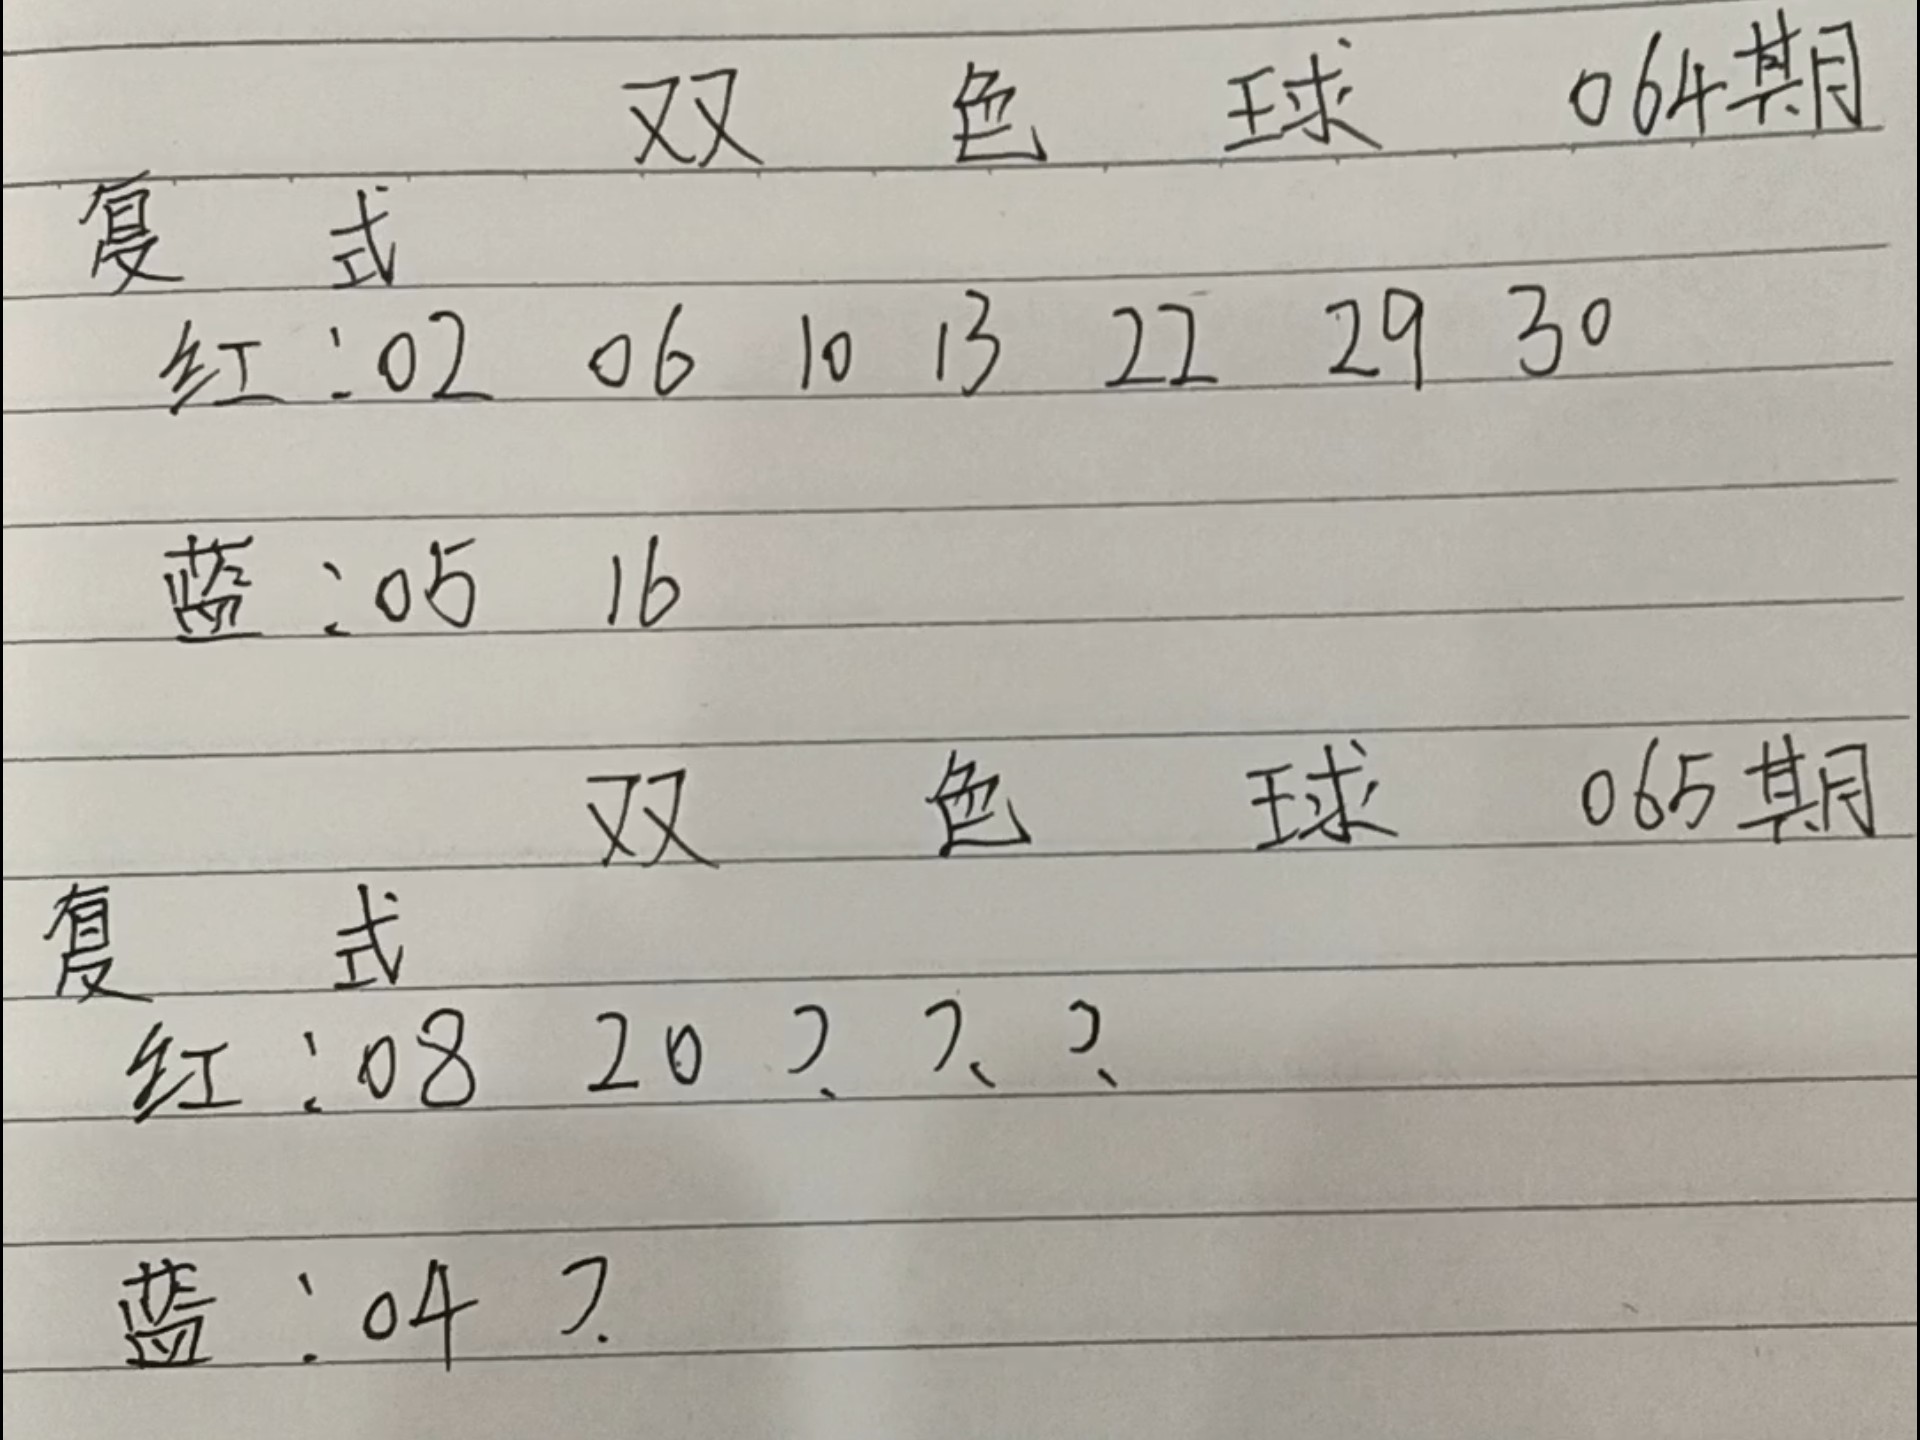 双 色 球 064期
复 式
红:02 06 10 13 22 29 30
蓝:05 16
双 色 球 065期
复 式
红:08 20 ? ? ?
蓝:04 ?